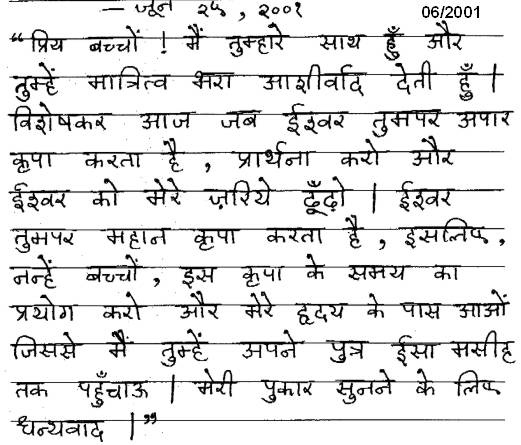 — जून २५, २००१
06/2001
“प्रिय बच्चों ! मैं तुम्हारे साथ हूँ और
तुम्हें मात्रित्व भरा आशीर्वाद देती हूँ |
विशेषकर आज जब ईश्वर तुमपर अपार
कृपा करता है , प्रार्थना करो और
ईश्वर को मेरे ज़रिये ढूँढ़ो | ईश्वर
तुमपर महान कृपा करता है , इसलिए ,
नन्हें बच्चों , इस कृपा के समय का
प्रयोग करो और मेरे हृदय के पास आओं
जिससे मैं तुम्हें अपने पुत्र ईसा मसीह
तक पहुँचाऊ | मेरी पुकार सुनने के लिए
धन्यवाद |”